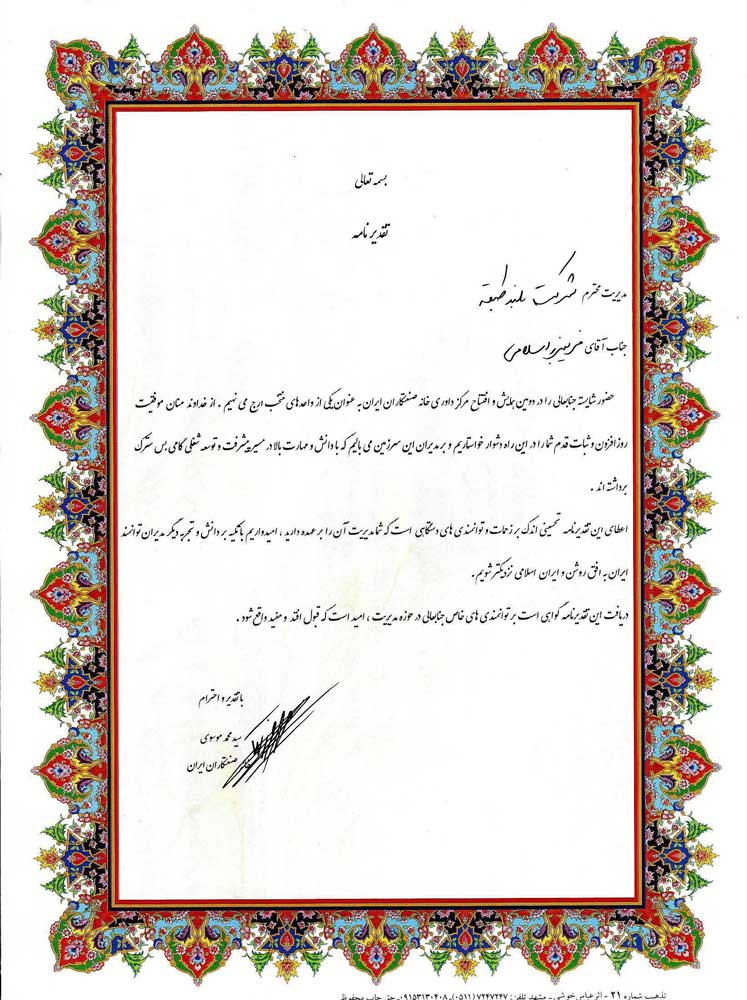 بسمه تعالی
تقدیر نامه
مدیریت محترم شرکت بلند طبقه
جناب آقای اسلامی
حضور شایسته جنابعالی را در دومین همایش و افتتاح مرکز داوری خانه صنعتکاران ایران به عنوان یکی از واحدهای منتخب ارج می نهیم . از خداوند منان موفقیت
روز افزون و ثبات قدم شما را در این راه دشوار خواستاریم و بر مدیران این سرزمین می بالیم که با دانش و مهارت بالا در مسیر پیشرفت و توسعه شغلی گامی بس سترگ
برداشته اند .
اعطای این تقدیرنامه تحسینی اندک بر زحمات و توانمندی های دستگاهی است که شما مدیریت آن را بر عهده دارید ، امیدواریم با تکیه بر دانش و تجربه دیگر مدیران توانمند
ایران به افق روشن و ایران اسلامی نزدیکتر شویم .
دریافت این تقدیرنامه گواهی است بر توانمندی های خاص جنابعالی در حوزه مدیریت ، امید است که قبول افتد و مفید واقع شود .
با تقدیر و احترام
سید محمد موسوی
صنعتکاران ایران
تذهیب شماره ۲۱ - اثر عباس خوشی - مشهد تلفن: ۷۲۴۷۲۴۷ (۰۵۱۱) - ۰۹۱۵۳۱۳۰۴۰۸ حق چاپ محفوظ